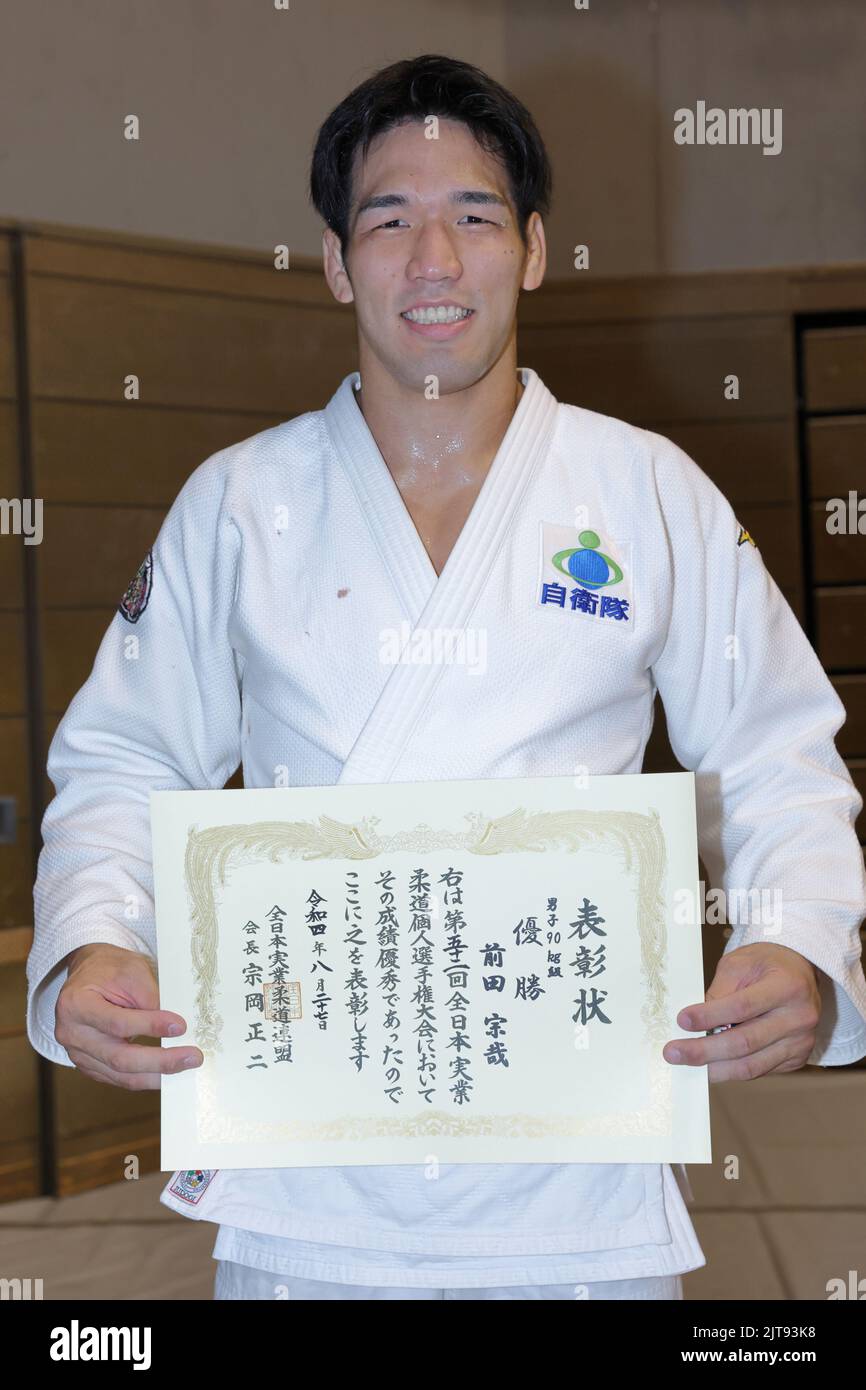 自衛隊
表彰状
男子90kg級
優勝
前田宗哉
右は第五十二回全日本実業
柔道個人選手権大会において
その成績優秀であったので
ここに之を表彰します
令和四年八月二十七日
全日本実業柔道連盟
会長 宗岡正二
alamy
Image ID: 2JT93K8
www.alamy.com